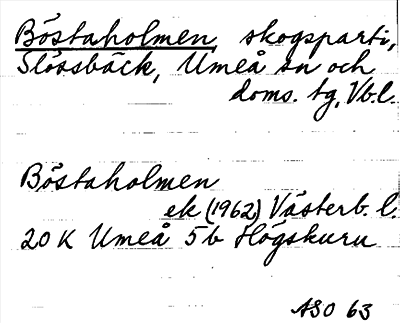 Böstaholmen, skogsparti,
Slössbäck, Umeå sn och
doms. tg, Vb.l.
Böstaholmen
ek (1962) Västerb. l.
20 K Umeå 5b Högskuru
ASO 63